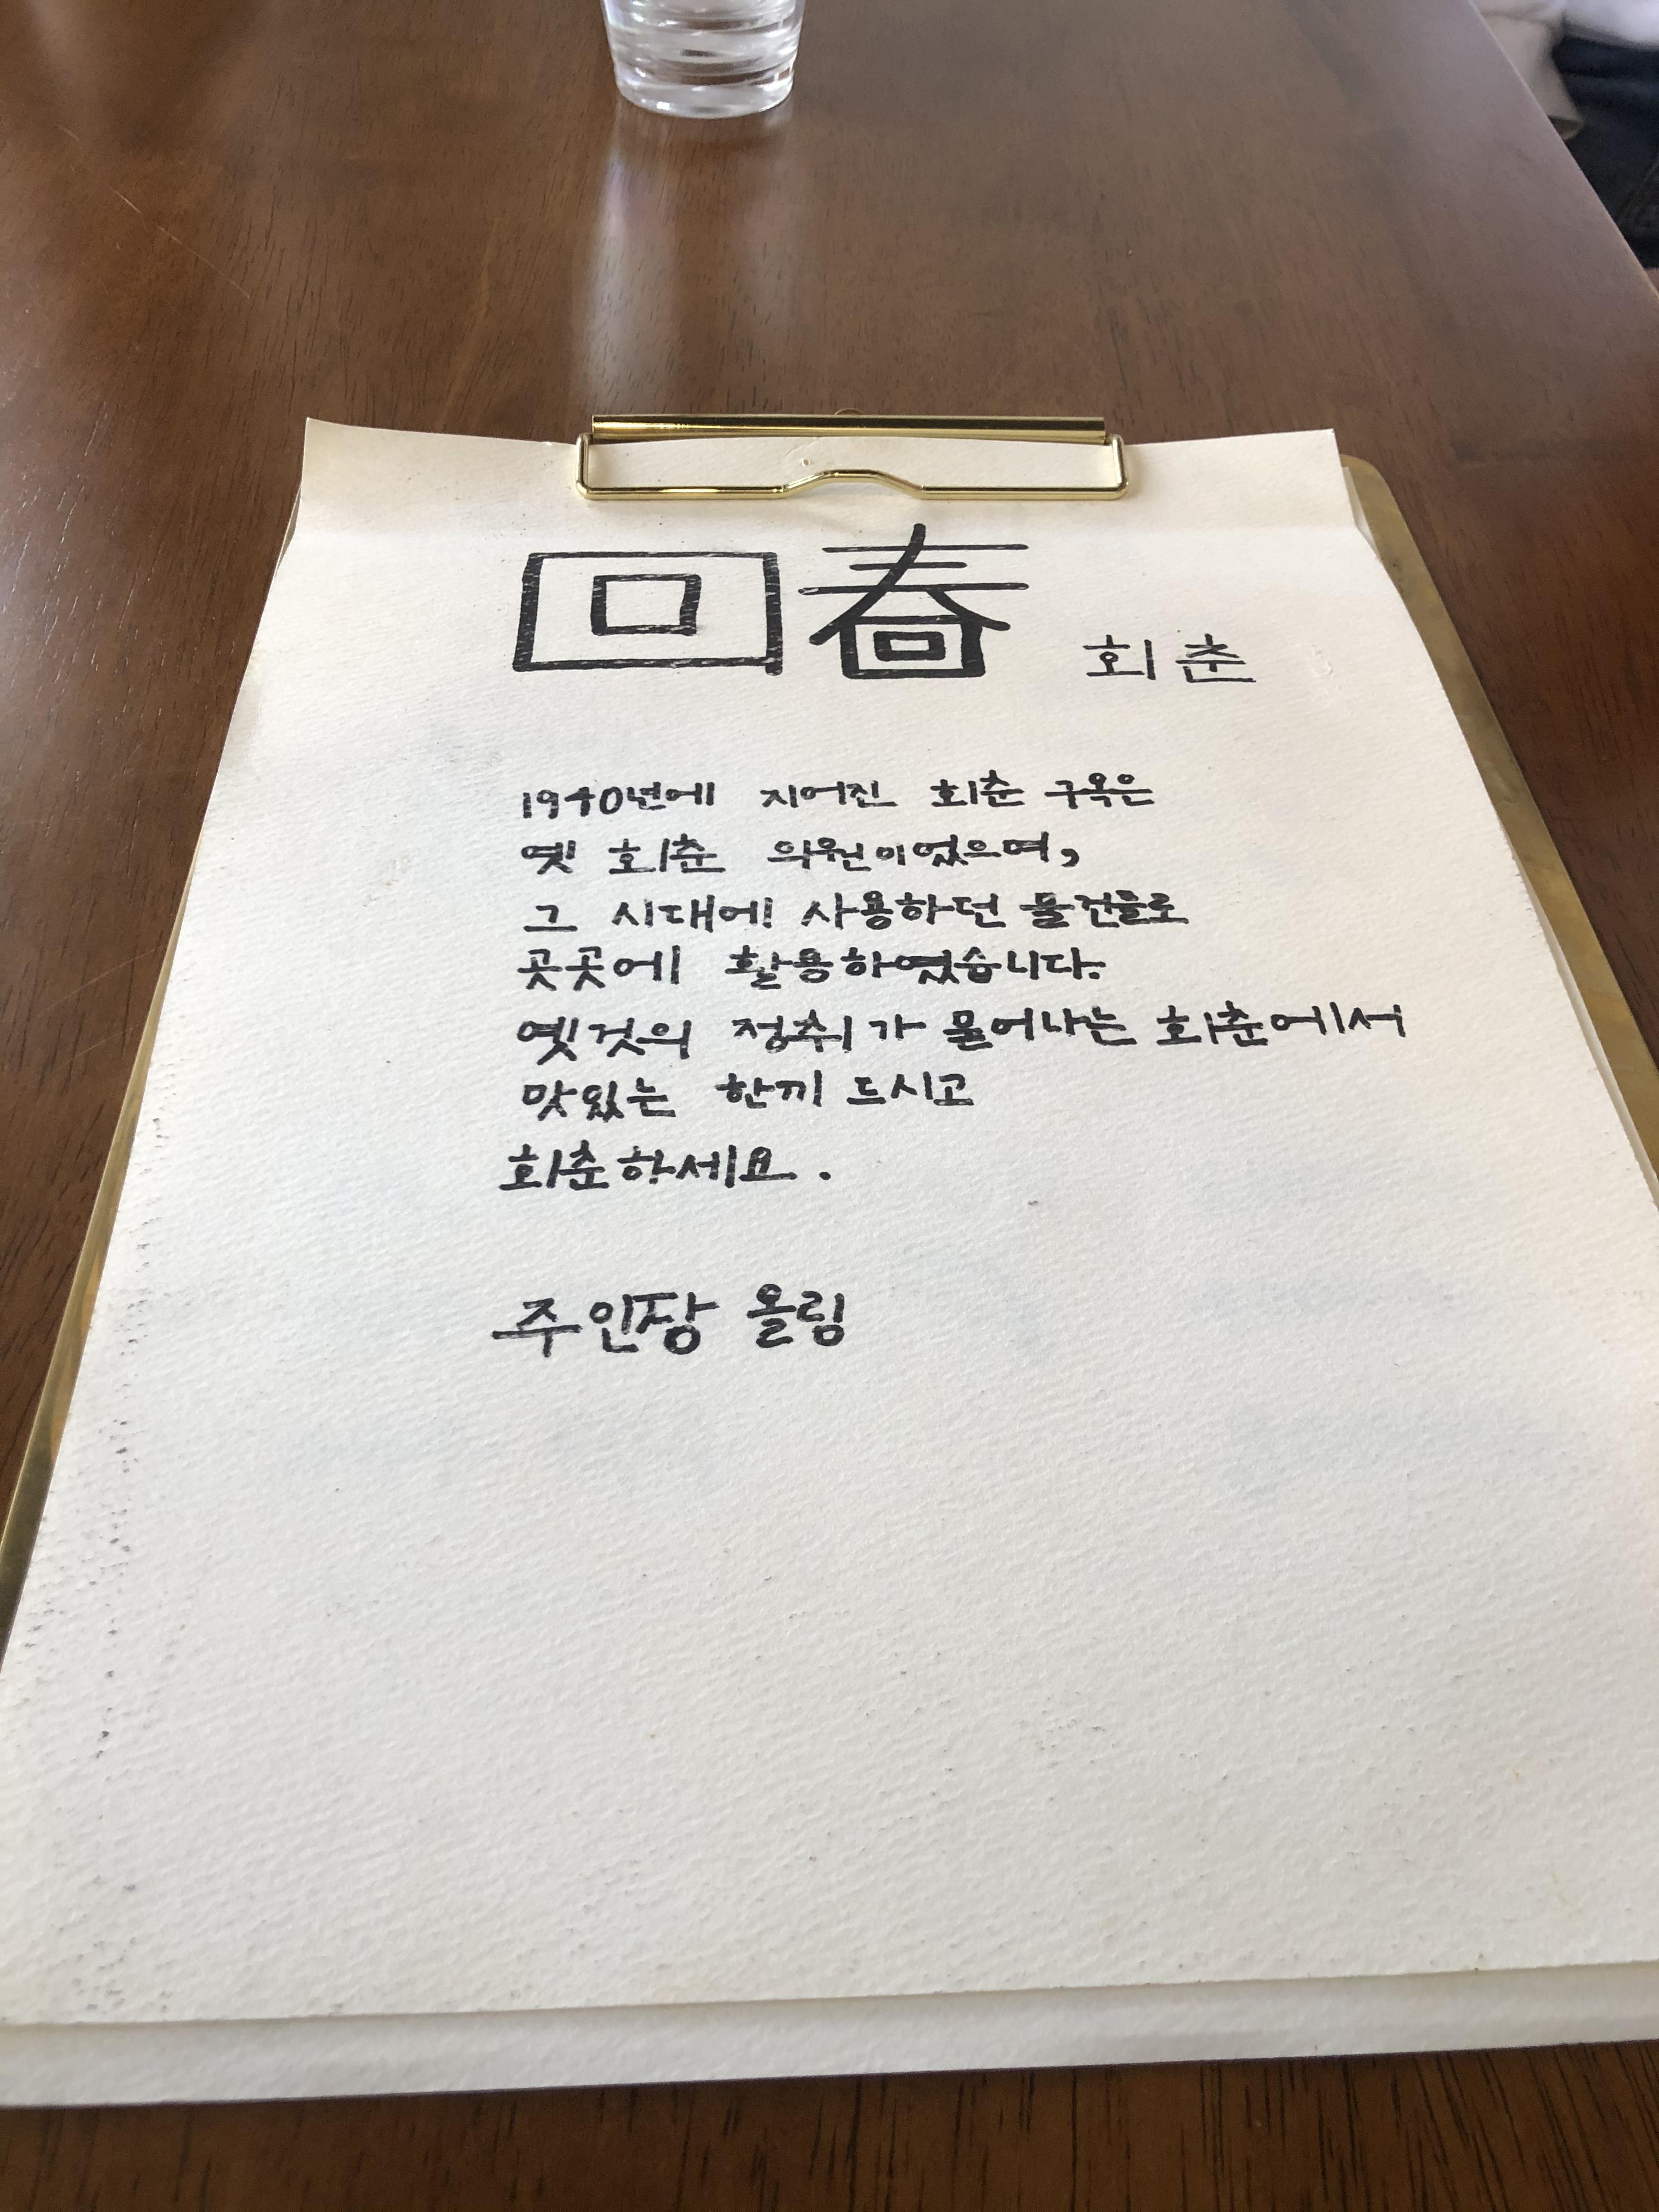 回春 회춘
1940년에 지어진 회춘 구옥은
옛 회춘 의원이었으며,
그 시대에 사용하던 물건들로
곳곳에 활용하였습니다.
옛것의 정취가 묻어나는 회춘에서
맛있는 한끼 드시고
회춘하세요.
주인장 올림